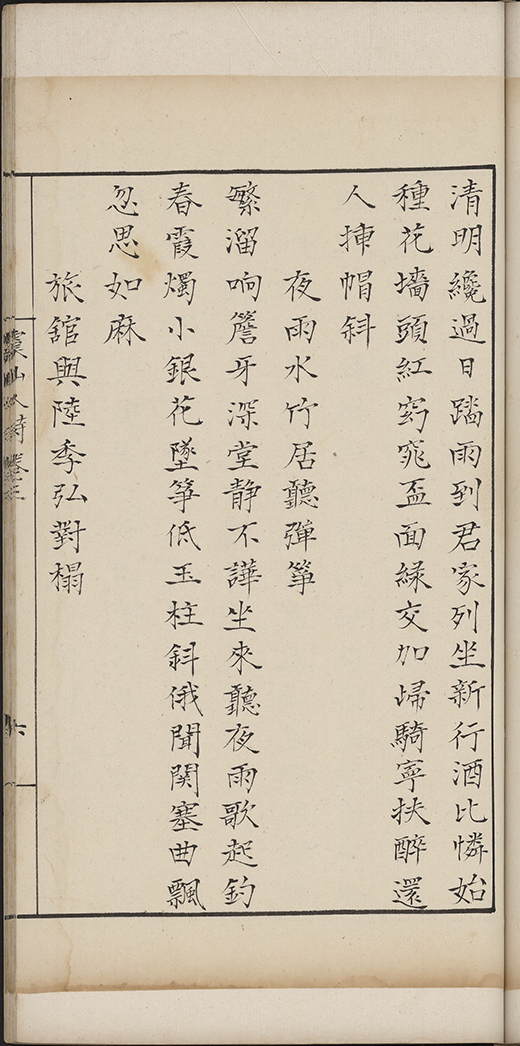 清明纔過日踏雨到君家列坐新行酒比憐始
種花墻頭紅窈窕盃面緑交加歸騎寧扶醉還
人揷帽斜
夜雨水竹居聽彈箏
繁溜响簷牙深堂静不譁坐來聽夜雨歌起釣
春霞燭小銀花墜箏低玉柱斜俄聞関塞曲飄
忽思如麻
旅舘與陸季弘對榻
山人詩卷三